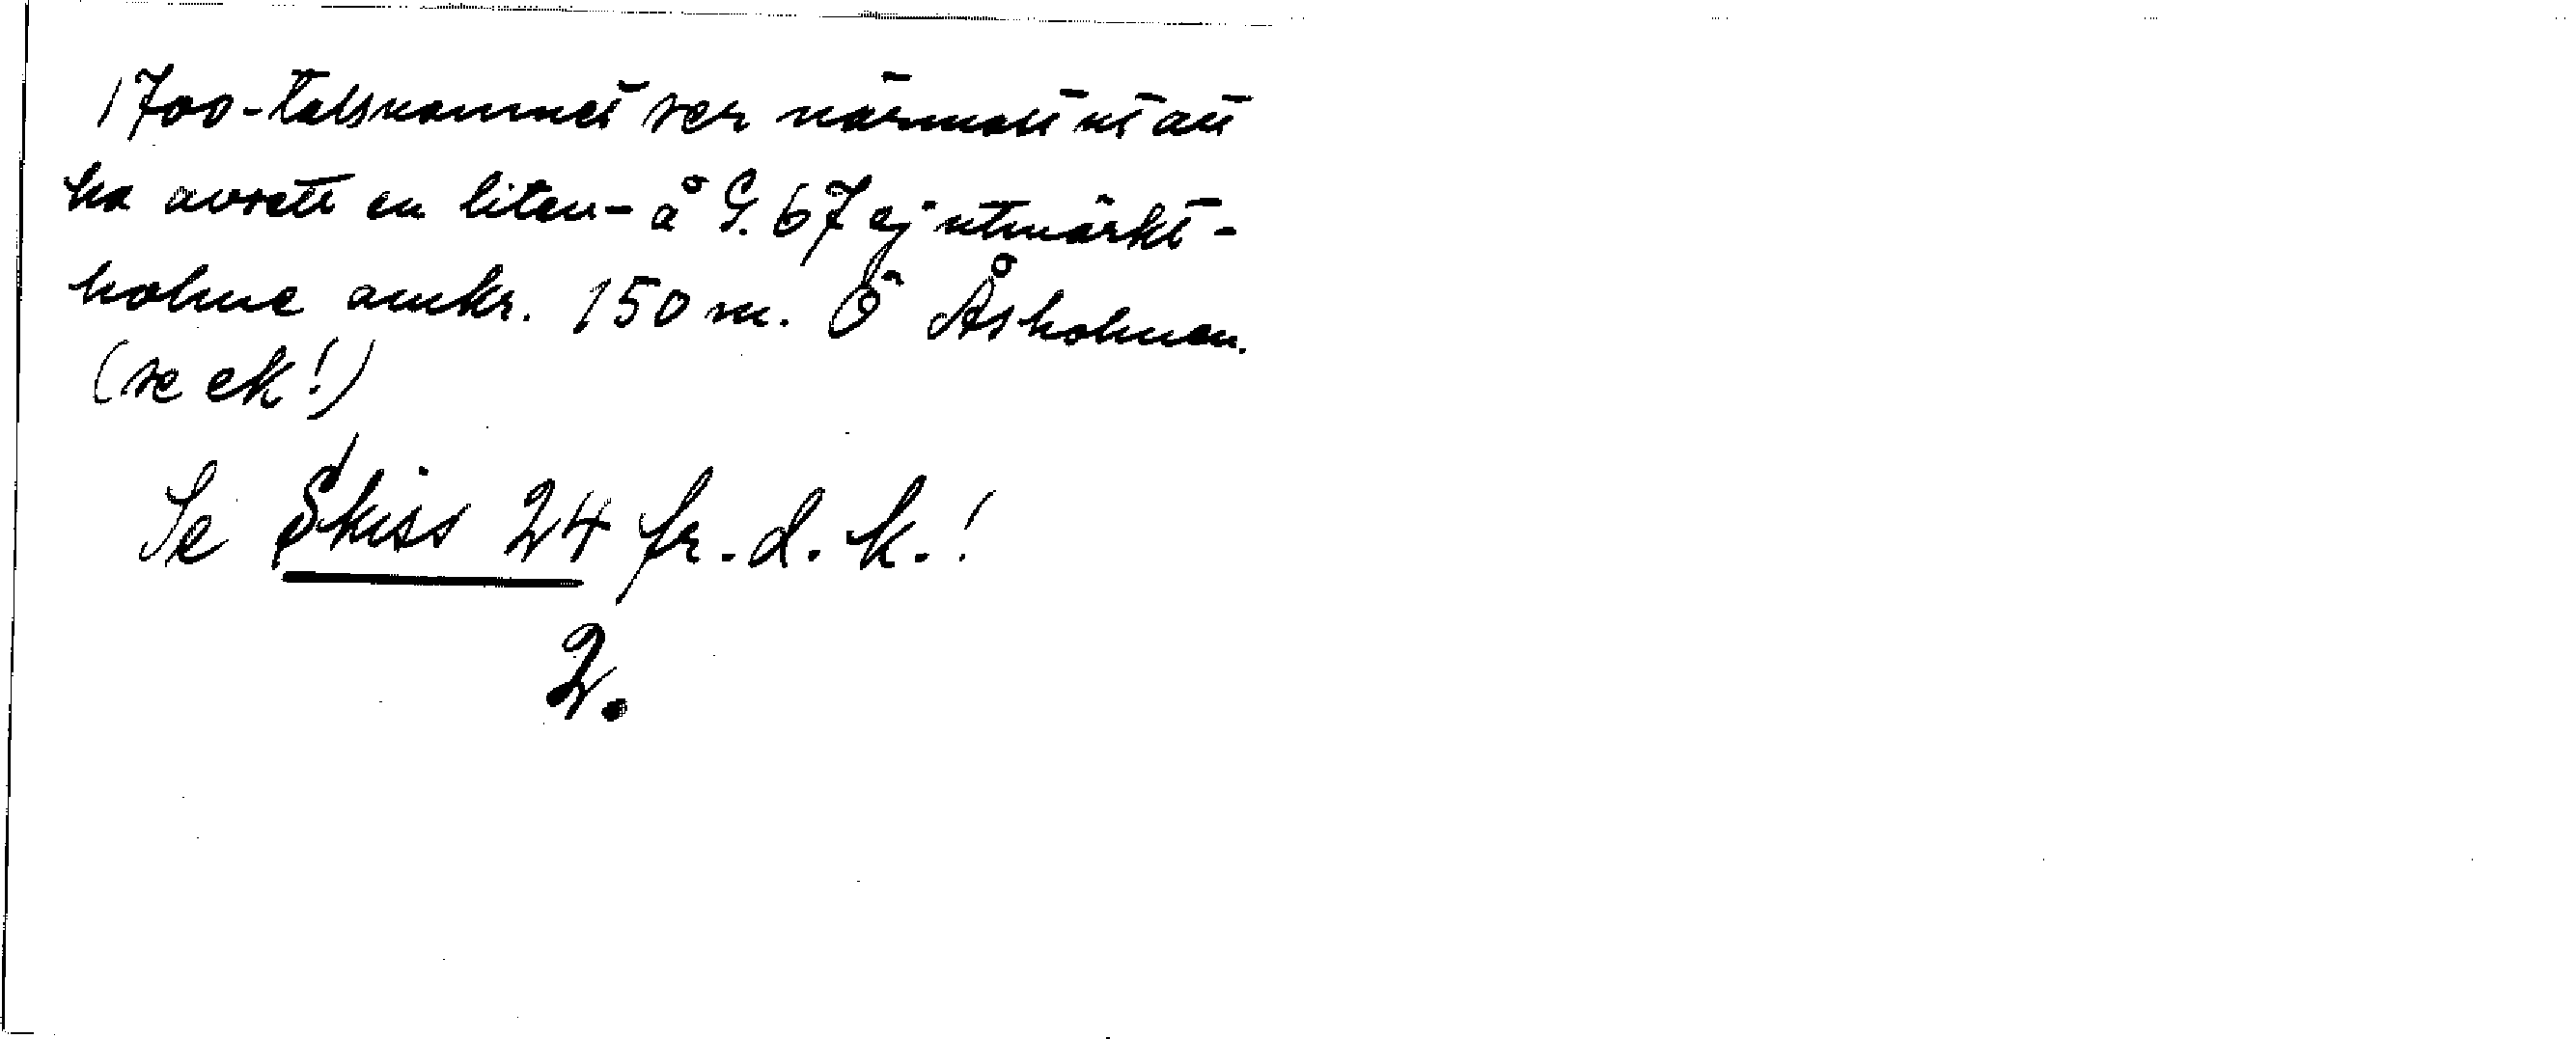 1700-talsnamnet ser närmast ut att
ha avsett en liten - å G. 67 ej utmärkt -
holme omkr. 150 m. Ö Åsholmen.
(se ek!)
Se Skiss 24 fr. d. k.!
2.